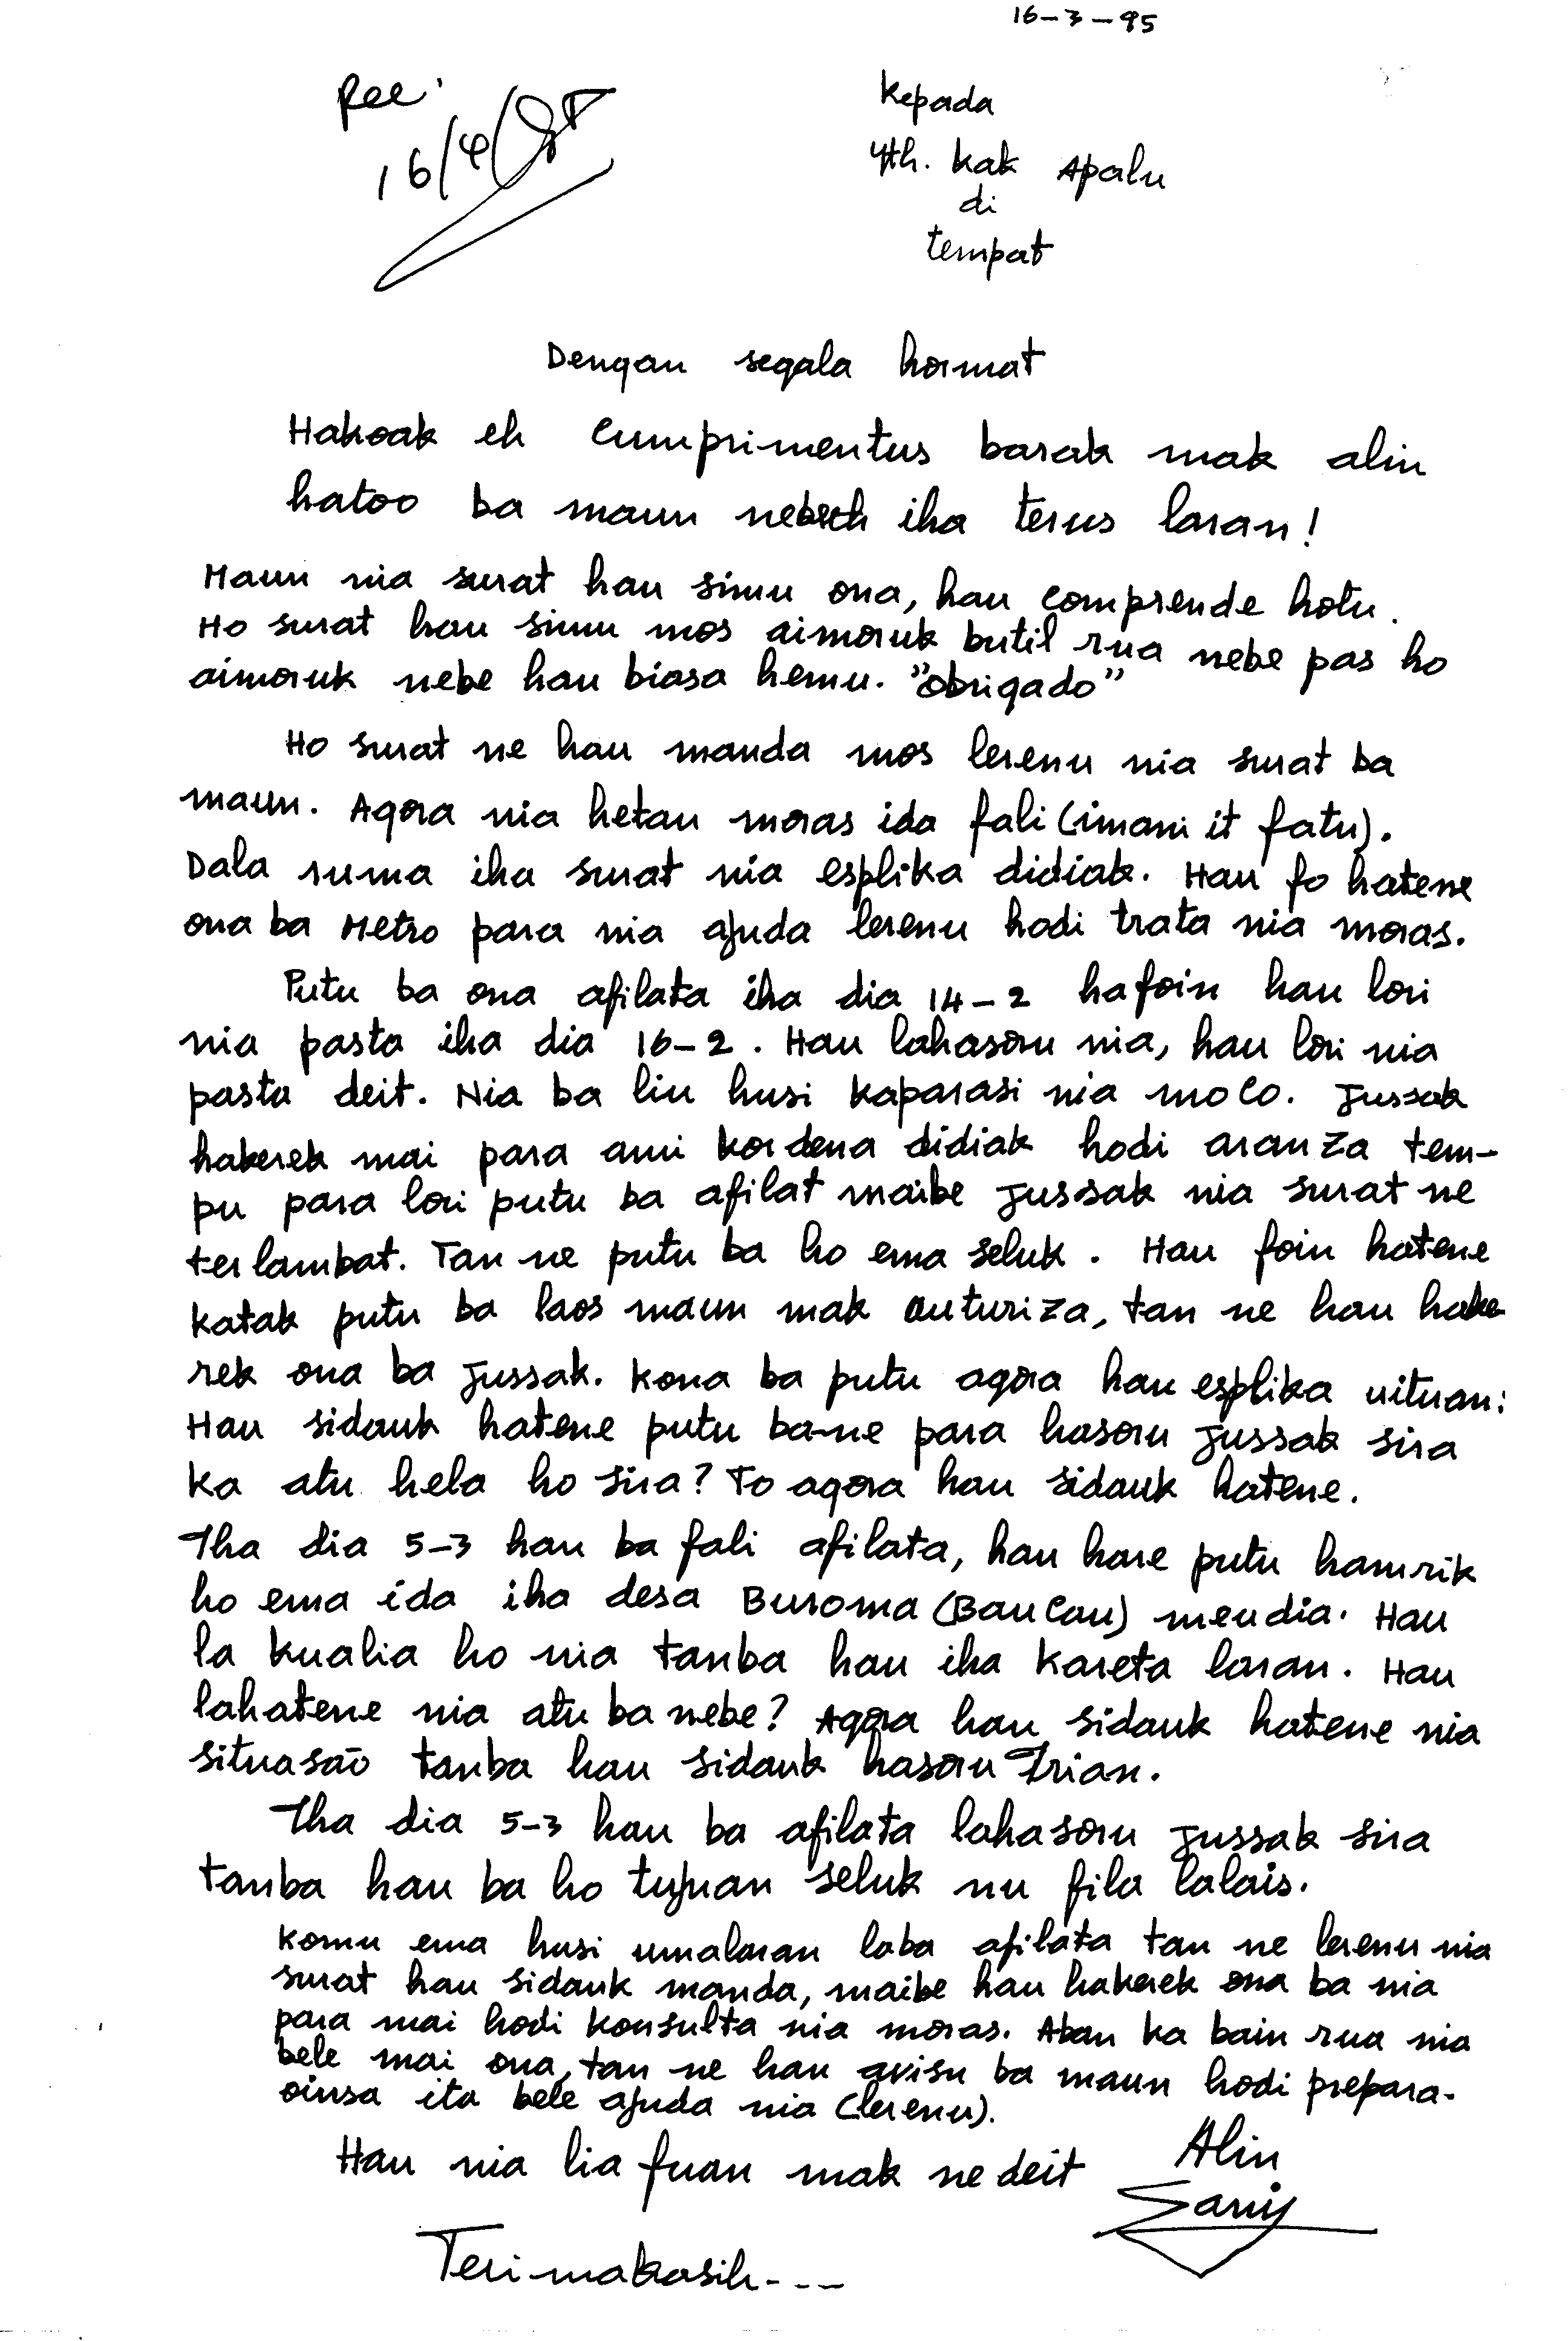 16-3-95
Rec.
16/4/95
Kepada
Yth. Kak Apalu
di
tempat
Dengan segala hormat
Hakoak eh cumprimentus barak mak alin
hatoo ba maun nebeeh iha terus laran!
Maun nia surat hau simu ona, hau comprende hotu.
Ho surat hau simu mos aimoruk butil rua nebe pas ho
aimoruk nebe hau biasa hemu. "Obrigado"
Ho surat ne hau manda mos lerenu nia surat ba
maun. Agora nia hetan moras ida fali (imani it fatu).
Dala ruma iha surat nia esplika didiak. Hau fo hatene
ona ba Metro para nia ajuda lerenu hodi trata nia moras.
Putu ba ona afilata iha dia 14-2 hafoin hau lori
nia pasta iha dia 16-2. Hau lahasoru nia, hau lori nia
pasta deit. Nia ba liu husi kaparasi nia moco. Jussak
hakerek mai para ami kordena didiak hodi aranza tem-
pu para lori putu ba afilat maibe Jussak nia surat ne
terlambat. Tan ne putu ba ho ema seluk. Hau foin hatene
katak putu ba laos maun mak auturiza, tan ne hau hake
rek ona ba Jussak. Kona ba putu agora hau esplika uituan:
Hau sidauk hatene putu ba-ne para hasoru Jussak sira
ka atu hela ho sira? To agora hau sidauk hatene.
Iha dia 5-3 hau ba fali afilata, hau hare putu hamrik
ho ema ida iha desa Buroma (Baucau) meudia. Hau
la kualia ho nia tanba hau iha kareta laran. Hau
lahatene nia atu ba nebe? Agora hau sidauk hatene nia
situasão tanba hau sidauk hasoru Irian.
Iha dia 5-3 hau ba afilata lahasoru Jussak sira
tanba hau ba ho tujuan seluk nu fila lalais.
Komu ema husi umalaran laba afilata tan ne lerenu nia
surat hau sidauk manda, maibe hau hakerek ona ba nia
para mai hodi konsulta nia moras. Aban ka bain rua nia
bele mai ona, tan ne hau avisu ba maun hodi prepara-
oinsa ita bele ajuda nia (lerenu).
Hau nia lia fuan mak ne deit
Alin
Terimakasih---